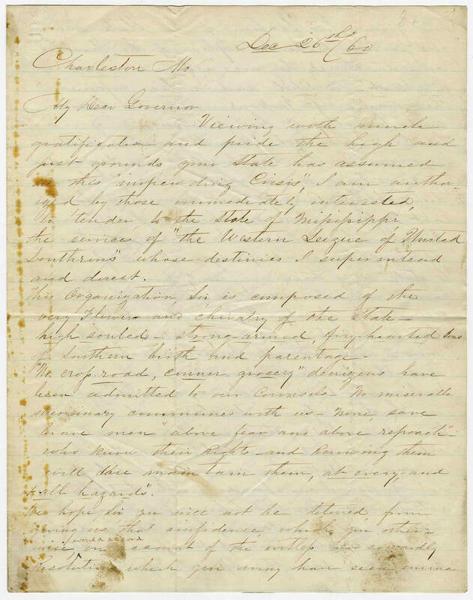 Dec 26th / 60
Charleston Mo.
My Dear Governor
Viewing with much
gratification and pride the high and
just grounds your State has assumed
in this "impending Crisis", I am autho-
ized by those immediately interested,
to tender to the State of Mississippi
the services of "the Western League of United
Southrons" whose destinies I superintend
and direct.
This Organization, Sir is composed of the
very flower and chivalry of the State -
high souled - strong-armed, fiery-hearted sons
of Southern birth and parentage -
"No cross-road, corner grocery" denizens have
been admitted to our Councils - No miserable
mercenary communes with us - None, save
brave men "above fear and above reproach" -
who know their Rights - and knowing them
will dare maintain them, at every and
all hazards".
We hope Sir you will not be deterred from
giving us that confidence which you other-
wise, on account of the
resolutions which you may have seen